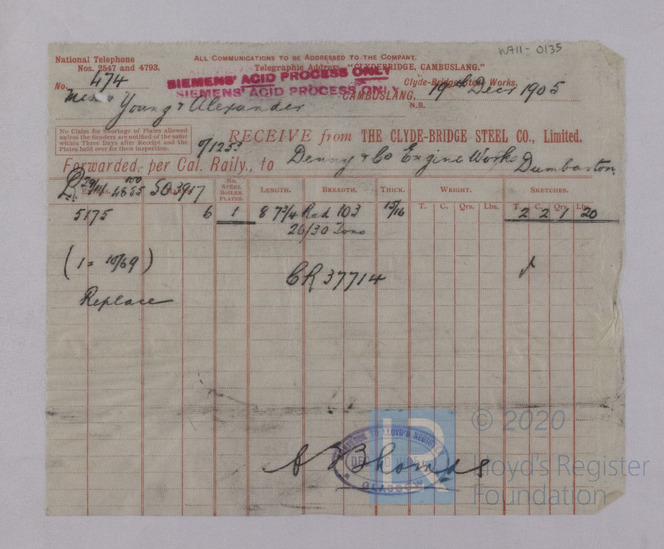 WA11-0135
National Telephone
Nos. 2547 and 4793.
ALL COMMUNICATIONS TO BE ADDRESSED TO THE COMPANY.
Telegraphic Address, "CLYDEBRIDGE, CAMBUSLANG."
No. 474
SIEMENS' ACID PROCESS ONLY
SIEMENS' ACID PROCESS ONLY
Clyde-Bridge Steel Works,
CAMBUSLANG, 19th Decr 1905
N.B.
Young & Alexander
No Claim for Shortage of Plates allowed
unless the Senders are notified of the same
within Three Days after Receipt and the
Plates held over for their inspection.
9/1253
RECEIVE from THE CLYDE-BRIDGE STEEL CO., Limited.
Forwarded, per Cal. Raily., to Denny & Co Engine Works Dumbarton
29/11 4865 50,3917
No. STEEL BOILER PLATES.
LENGTH. BREADTH. THICK. WEIGHT. SKETCHES.
T. C. Qrs. Lbs. T. C. Qrs. Lbs.
5175 6 1 8 7 3/4 Rad 103 15/16 2 2 1 20
26/30 Tons
(1 = 10/69)
CR 37714
Replace
GLASGOW
© 2020
Lloyd's Register
Foundation
LR